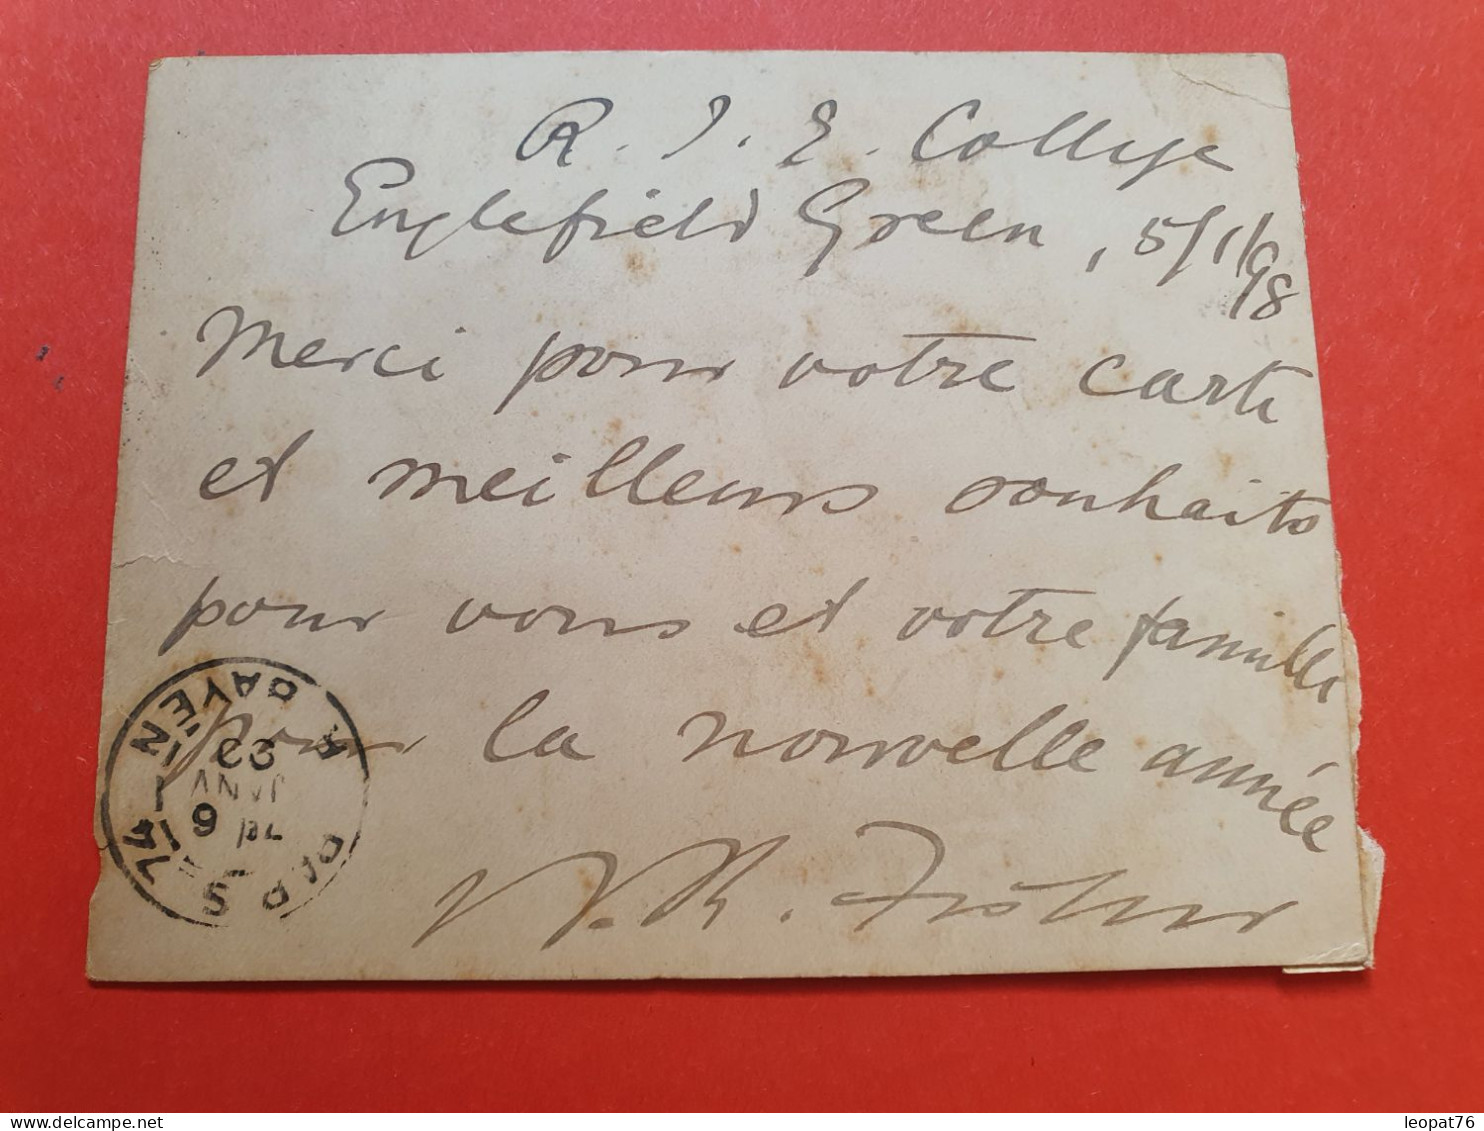 R. I. E. College
Englefield Green, 5/1/98
Merci pour votre carte
et meilleurs souhaits
pour vous et votre famille
pour la nouvelle année
R. Fisher
74
PARIS
6
JANV
98
leopat76
www.delcampe.net